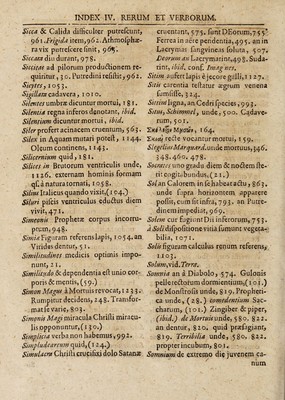 INDEX IV. RERUM ET VERBORUM.
Sicca & Calida difficulter putrescunt,
961. Frigida item, 962. Athmosphæ-
ra vix putrescere sinit, 963.
Siccata diu durant, 978.
Siccitas ad pilorum productionem re-
quiritur, 30. Putredini resistit, 961.
Sicyres, 1053.
Sigillum cadavera, 1010.
Silentes umbræ dicuntur mortui, 181.
Silentia regna inferos denotant, ibid.
Silentium dicuntur mortui, ibid.
Siler profert acinacem cruentum, 563.
Silex in Aquam mutari potest, 1144.
Oleum continens, 1143.
Silicernium quid, 181.
Silices in Brutorum ventriculis unde,
1126. externam hominis formam
quâ natura tornat, 1058.
Silius Italicus quando vixit, (104.)
Siluri piscis ventriculus eductus diem
vivit, 471.
Simeonis Prophetæ corpus incorru-
ptum, 948.
Simia Figuram referens lapis, 1054. an
Virides dentur, 51.
Similitudines medicis optimis impo-
nunt, 21.
Similitudo & dependentia est unio cor-
poris & mentis, (59.)
Simon Magus à Mortuis revocat, 1233.
Rumpitur decidens, 248. Transfor-
mat se varie, 803.
Simonis Magi miracula Christi miracu-
lis opponuntur, (130.)
Simplicia verba non habemus, 992.
Simpludearum quid, (124.)
Simulacra Christi crucifixi dolo Satanæ
cruentant, 575. sunt DEorum, 755.
Ferrea in aëre pendentia, 495. an in
Lacrymas sanguineas soluta, 507,
Deorum an Lacrymarint, 498. Suda-
rint, ibid. conf. Imagines.
Sitim aufert lapis è jecore galli, 1127.
Sitis carentia testatur ægrum venena
sumsisse, 324.
Sittim ligna, an Cedri species, 993.
Sont, Schimmel, unde, 500. Cadave-
rum, 501.
164.
recte vocantur mortui, 159.
unde mortuus, 346.
348. 460. 478.
uno gradu diem & noctem ste-
tit cogitabundus, (21.)
Sol an Calorem in se habeat actu, 863.
unde supra horizontem appareat
possit, cum sit infra, 793. an Putre-
dinem impediat, 969.
Solem cur fugiant Dii infestorum, 753.
à Soli dispositione vitia sumunt vegeta-
bilia, 1071.
Solis figuram calculus renum referens,
1103.
Solum, vid. Terra.
Somnia an à Diabolo, 574. Gulonis
pelle tectorum dormientium, (101.)
de Monstrosis unde, 819. Propheti-
ca unde, (28.) comedentium Sac-
charum, (101.) Zingiber & piper,
(ibid.) de Mortuis unde, 580. 822.
an dentur, 820. quid præsagiant,
819. Terribilia unde, 580. 822.
propter incubum, 801.
Somnium de extremo die juvenem ca-
nium